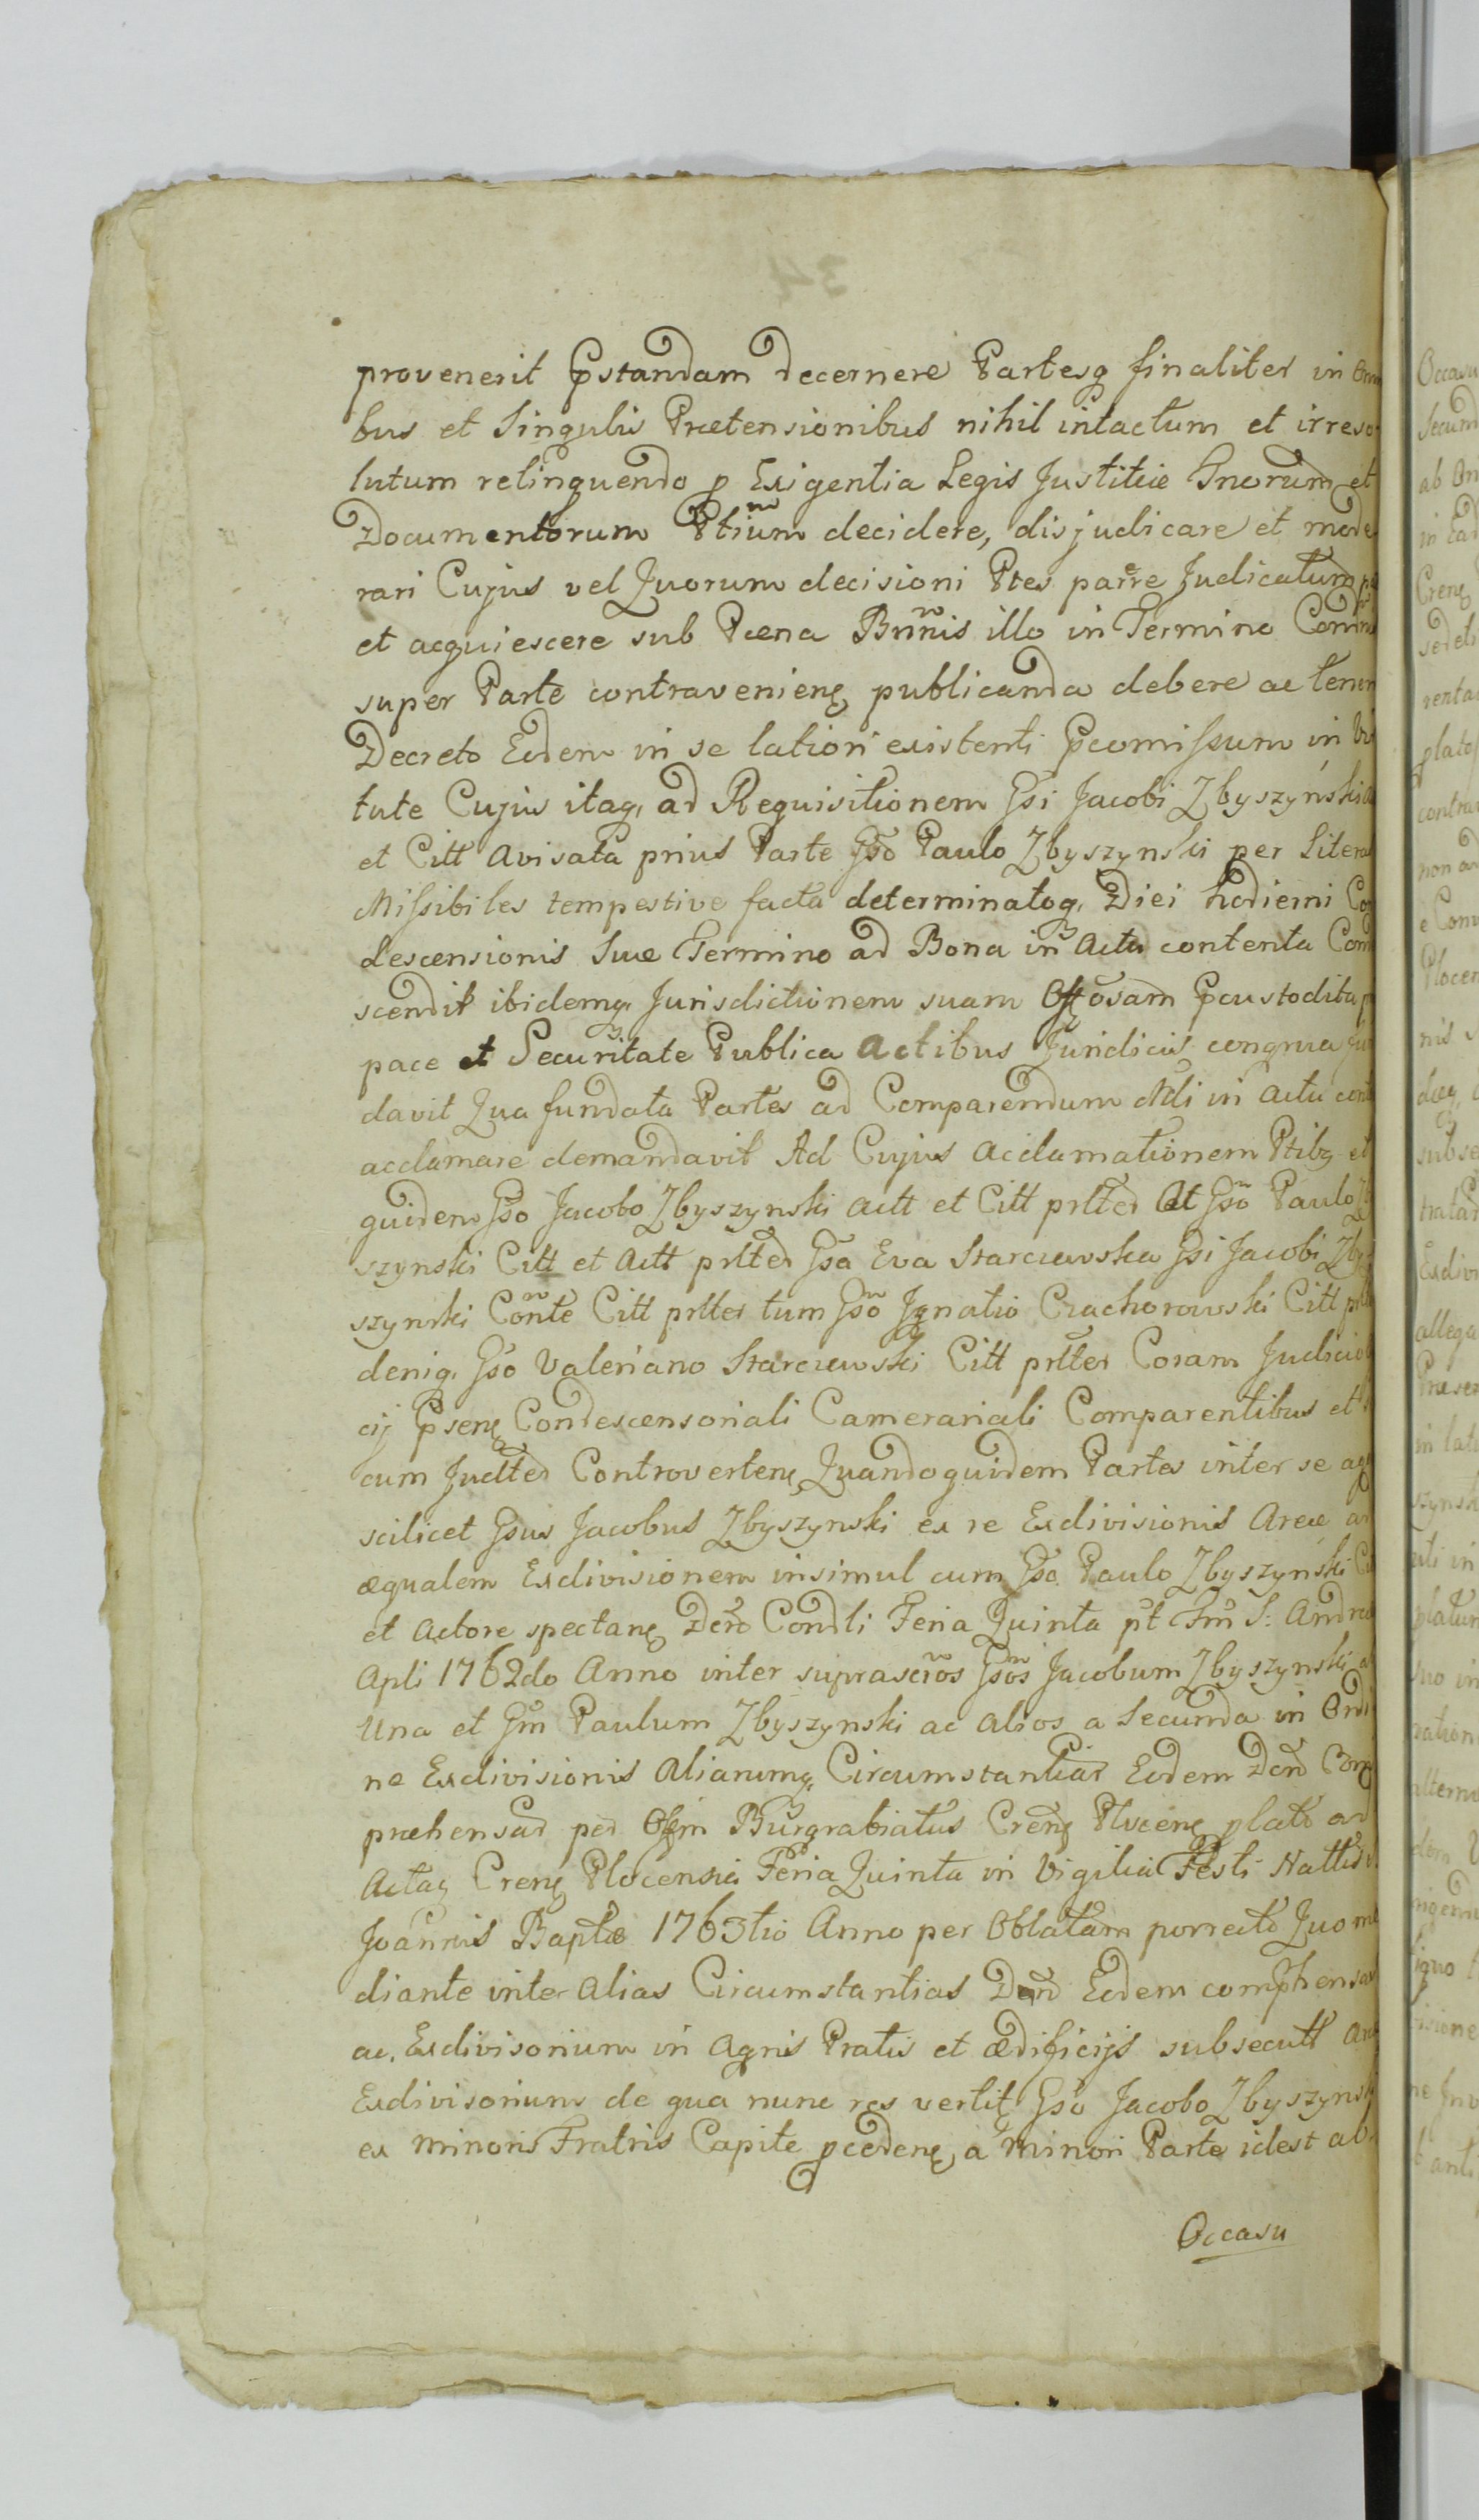 provenerit Pstandam decernere Partesq finaliter in
bus et Singulis Prætensionibus nihil intactum et irreso
lutum relinquendo p Exigentia Legis Justitiæ Jnorum et
Documentorum Ptium decidere, disjudicare et mode
rari Cujus vel Quorum decisioni Ptes parere Judicatum
et acquiescere sub Pæna Bnnis illo in Termino
super Parte contravenienę publicanda debere ac
Decreto Eodem in se latiori existenti Pcomissum in
tute Cujus itaq, ad Requisitionem Gsi Jacobi Zbyszynski
et Citt avisata prius Parte Gso Paulo Zbyszynski per Literas
Missibiles tempestive facta determinatoq, Diei hodierni
descensionis Suæ Termino ad Bona in Actu contenta
scendit ibidemq, Jurisdictionem suam Offosam Pcustodita
pace et Securitate Publica Actibus Juridicis congrua
davit Qua fundata Partes ad Comparendum Nli in Actu
acclamare demandavit Ad Cujus Acclamationem Ptibq et
quidem Gso Jacobo Zbyszynski Actt et Citt prltter At Gso Paulo
szynski Citt et Actt prltter Gsa Eva Starczewska Gsi Jacobi Zby
szynski Conte Citt prltter tum Gso Jgnatio Czachorowski Citt
deniq, Gso Valeriano Starczewski Citt prltter Coram Judicio
cij Psenę Condescensoriali Camerariali Comparentibus et
cum Judtter Controvertenę Quandoquidem Partes inter se
scilicet Gsus Jacobus Zbyszynski ex re Exdivisionis Areæ
æqualem Exdivisionem insimul cum Gso Paulo Zbyszynski
et Actore spectanę Dcro Condli Feria Quinta pt Fm S: Andreæ
Apli 1762do Anno inter suprascros Gsos Jacobum Zbyszynski
Una et Gm Paulum Zbyszynski ac alios a Secunda in Ordi
ne Exdivisionis Aliarumq, Circumstantiar Eodem Dcro Com
præhensar per Offm Burgrabiatus Crenę Plocenę plato ad
Actaq Crenę Plocensia Feria Quinta in Vigilia Festi Nattis
Joannis Baptæ 1763tio Anno per Oblatam porrecto Quo me
diante inter Alias Circumstantias Dcro Eodem comphensas
ac Exdivisorium in Agris Pratis et ædificijs subsecutt
Exdivisorium de qua nunc res vertitę Gso Jacobo Zbyszynski
ex minoris Fratris Capite pcedenę, a minori Parte idest ab
Occasu